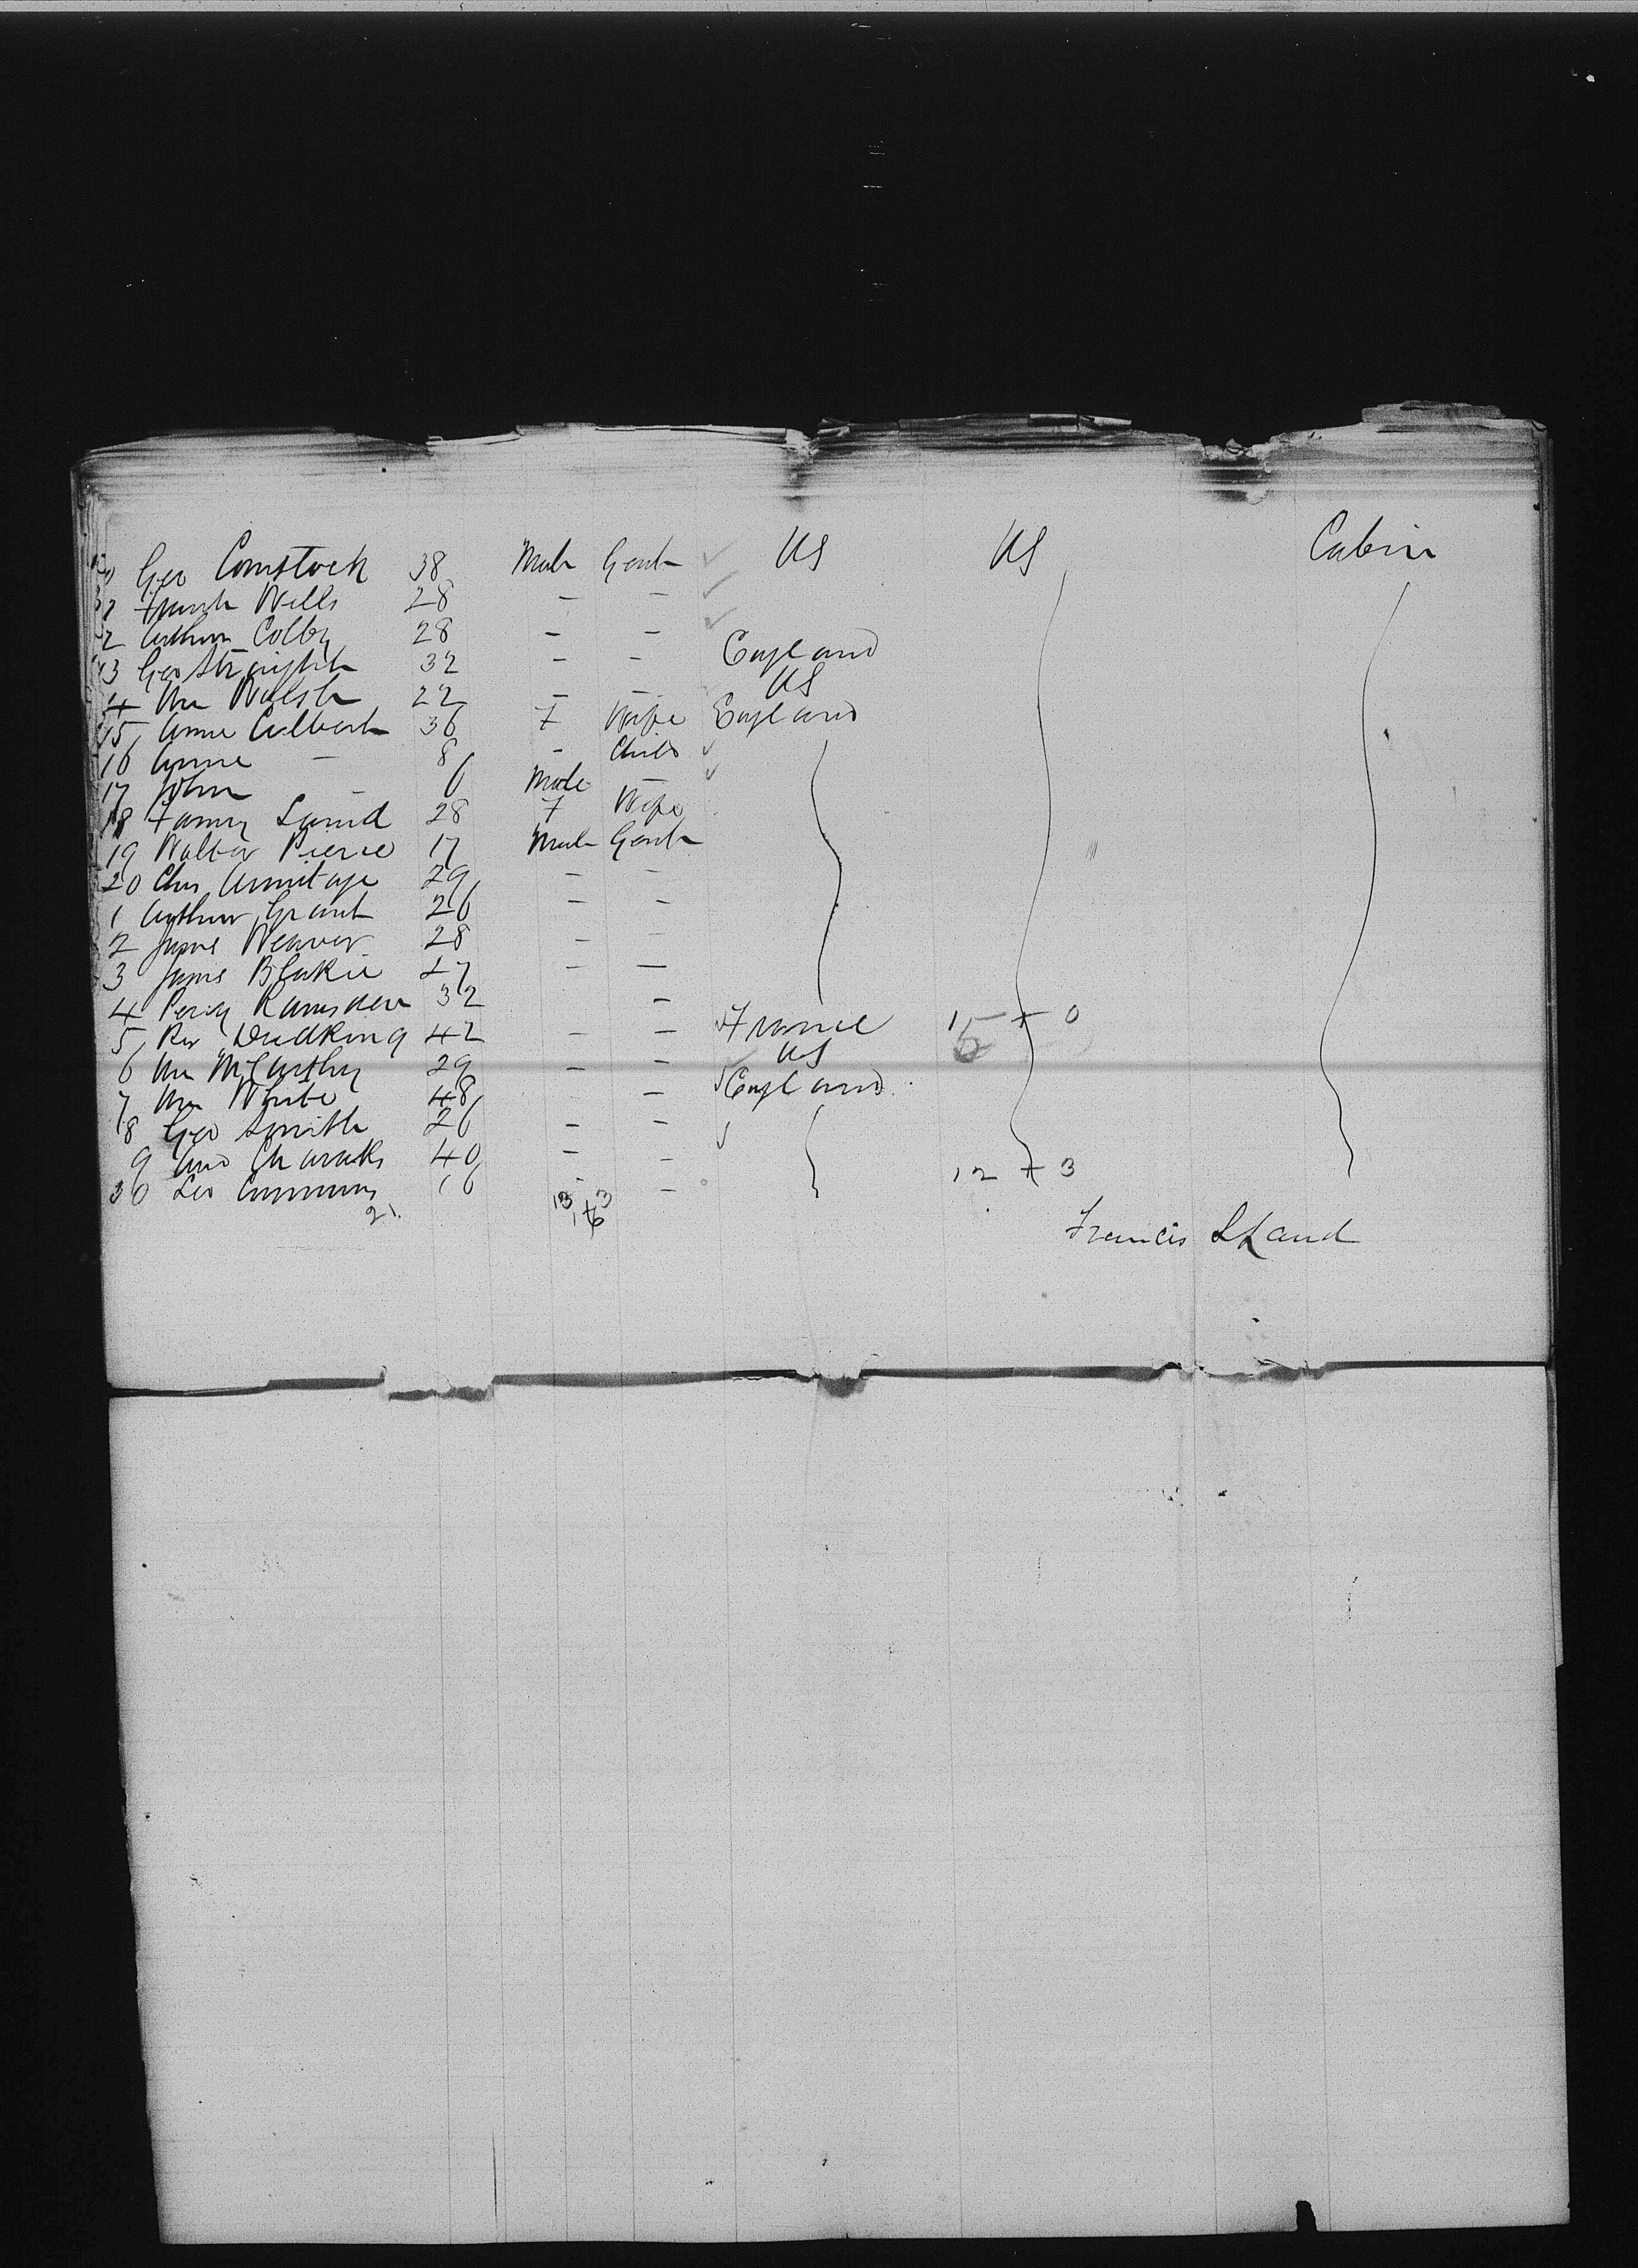 Geo Comstock 38 Male Gent US US Cabin
Frank Wells 28 - -
2 Arthur Colby 28 - -
13 Geo Straight 32 - - England
4 Mr Walsh 22 - - US
15 Anne Culbert 36 F Wife England
16 Anne - 8 - Child
17 John - 6 Male -
18 Fanny Laund 28 F Wife
19 Walter Pierce 17 Male Gent
20 Chas Armitage 29 - -
1 Arthur Grant 26 - -
2 James Weaver 28 - -
3 James Blakie 27 - -
4 Percy Ramsden 32 -
5 Rev 42 - - France 1 + 0
6 Mr McCarthy 29 - - US 5
7 Mr White 48 - England
8 Geo Smith 26 - -
9 40 - -
30 Leo Cummins 16 - - 12 + 3
21. 13 + 3
Francis